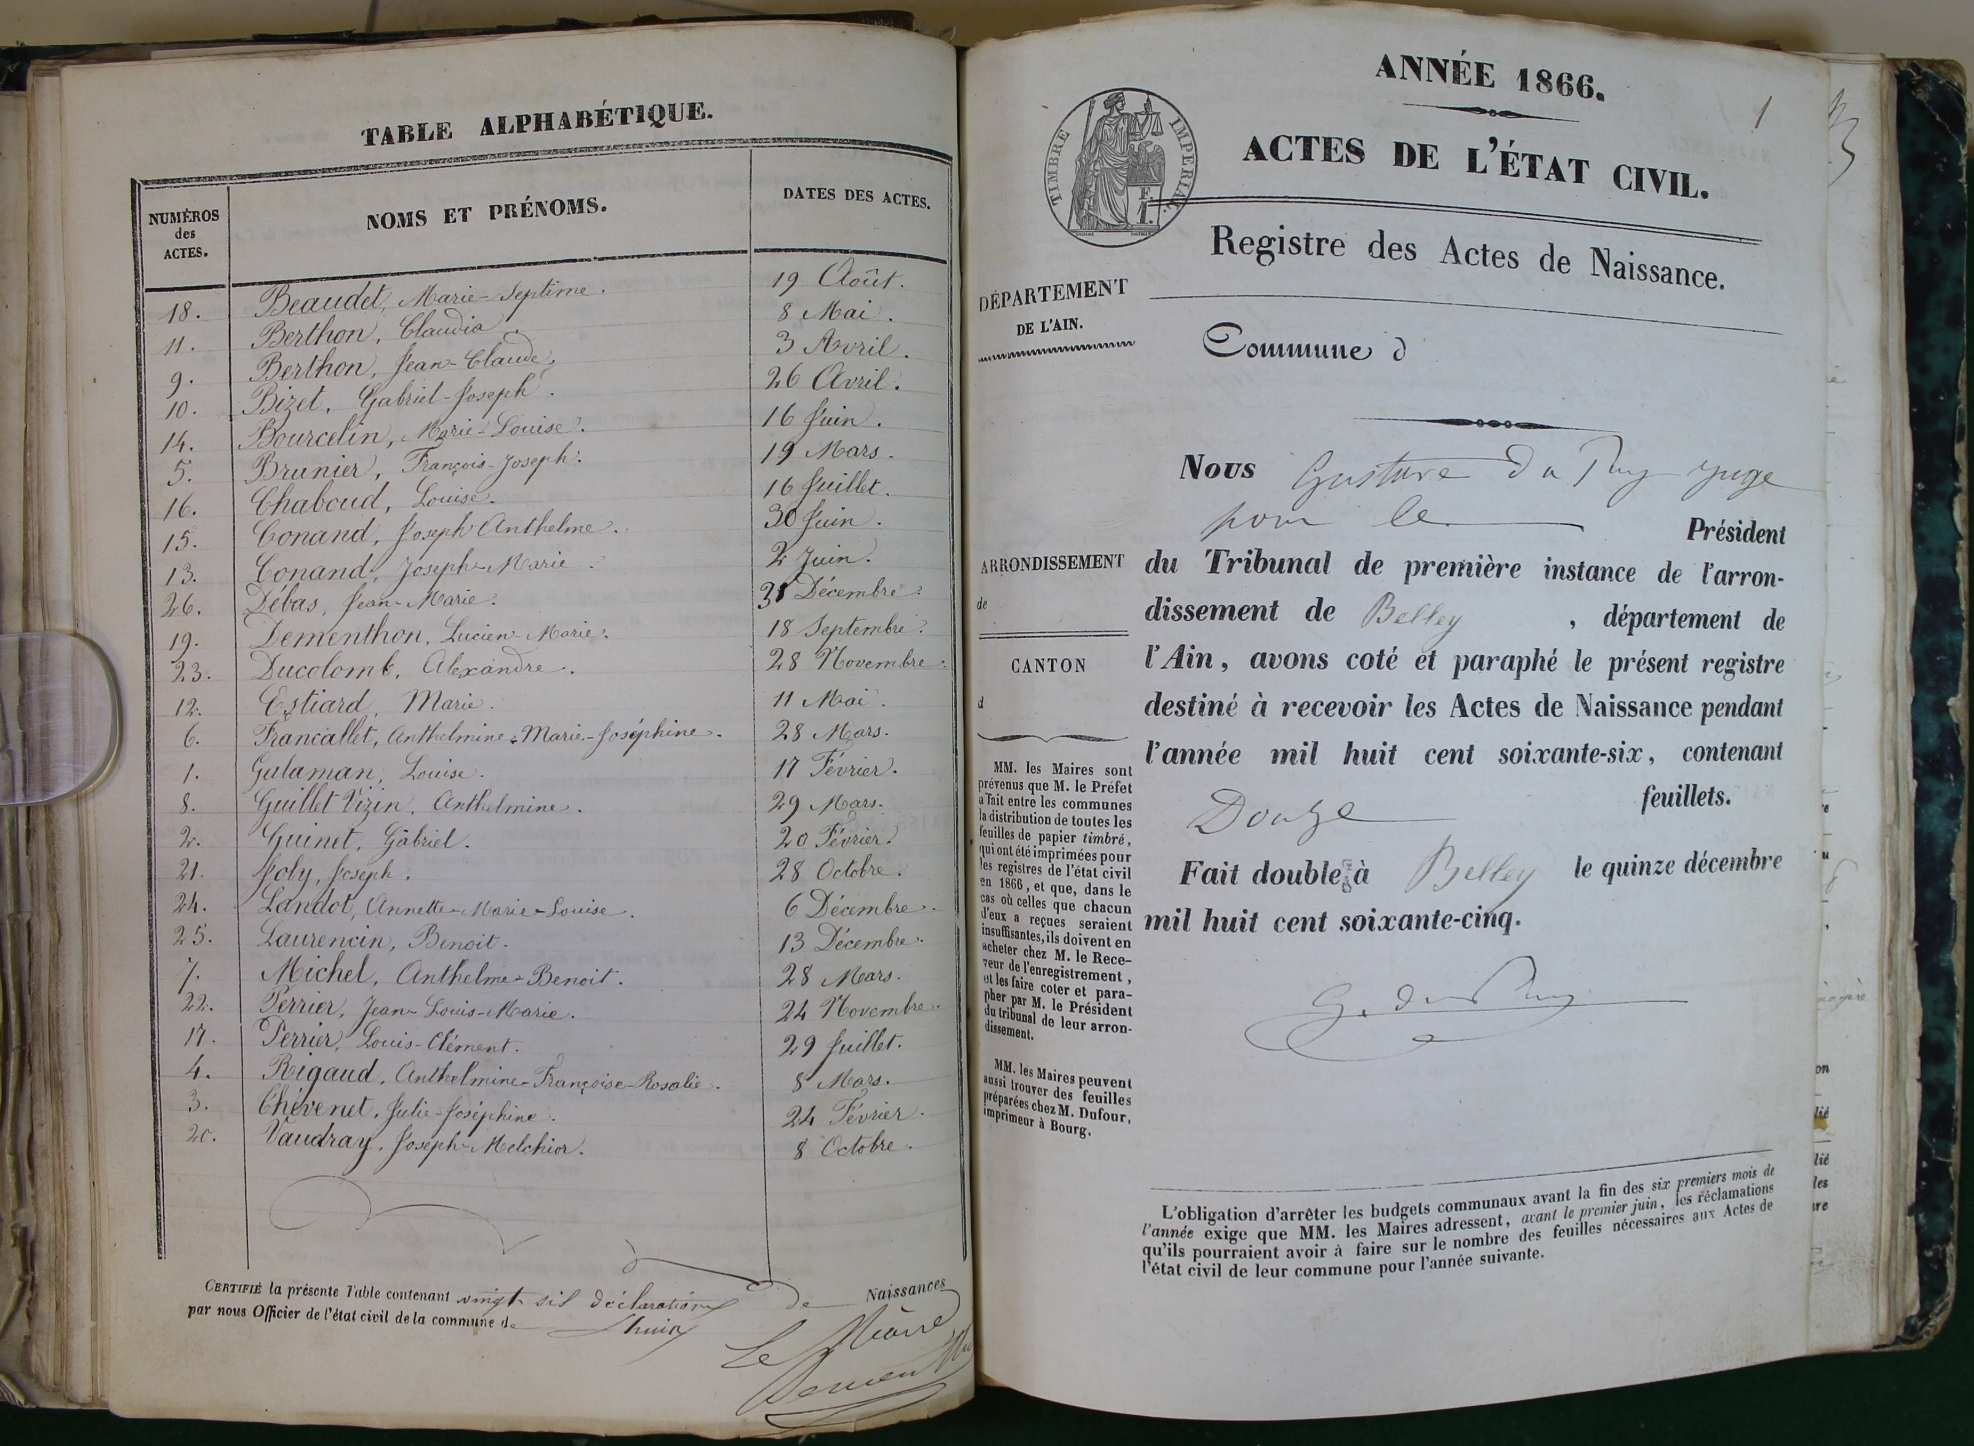 TABLE ALPHABÉTIQUE.
NUMÉROS des ACTES. NOMS ET PRÉNOMS. DATES DES ACTES.
18. Beaudet, Marie-Septime. 19 Août.
11. Berthon, Claudia. 8 Mai.
9. Berthon, Jean-Claude. 3 Avril.
10. Bizet, Gabriel-Joseph. 26 Avril.
14. Bourcelin, Marie-Louise. 16 Juin.
5. Brunier, François-Joseph. 19 Mars.
16. Chaboud, Louise. 16 Juillet.
15. Conand, Joseph Anthelme. 30 Juin.
13. Conand, Joseph-Marie. 2 Juin.
26. Débas, Jean-Marie. 31 Décembre.
19. Dementhon, Lucien-Marie. 18 Septembre.
23. Ducolomb, Alexandre. 28 Novembre.
12. Estiard, Marie. 11 Mai.
6. Françallet, Anthelmine-Marie-Joséphine. 28 Mars.
1. Gulaman, Louise. 17 Février.
8. Guillet Vizin, Anthelmine. 29 Mars.
2. Guinet, Gabriel. 20 Février.
21. Joly, Joseph. 28 Octobre.
24. Landot, Annette-Marie-Louise. 6 Décembre.
25. Laurencin, Benoit. 13 Décembre.
7. Michel, Anthelme-Benoit. 28 Mars.
22. Perrier, Jean-Louis-Marie. 24 Novembre.
17. Perrier, Louis-Clément. 29 Juillet.
4. Rigaud, Anthelmine-Françoise-Rosalie. 8 Mars.
3. Chevenet, Julie-Joséphine. 24 Février.
20. Vaudray, Joseph-Melchior. 8 Octobre.
CERTIFIÉ la présente Table contenant vingt six déclarations de Naissances
par nous Officier de l'état civil de la commune de Lhuis
Le Maire
1
ANNÉE 1866.
TIMBRE IMPERIAL
ACTES DE L'ÉTAT CIVIL.
Registre des Actes de Naissance.
DÉPARTEMENT
DE L'AIN.
Commune d
ARRONDISSEMENT
de
CANTON
d
MM. les Maires sont
prévenus que M. le Préfet
a fait entre les communes
la distribution de toutes les
feuilles de papier timbré,
qui ont été imprimées pour
les registres de l'état civil
en 1866, et que, dans le
cas où celles que chacun
d'eux a reçues seraient
insuffisantes, ils doivent en
acheter chez M. le Rece-
veur de l'enregistrement,
et les faire coter et para-
pher par M. le Président
du tribunal de leur arron-
dissement.
MM. les Maires peuvent
aussi trouver des feuilles
préparées chez M. Dufour,
imprimeur à Bourg.
Nous Gustave du Puy juge
pour le Président
du Tribunal de première instance de l'arron-
dissement de Belley, département de
l'Ain, avons coté et paraphé le présent registre
destiné à recevoir les Actes de Naissance pendant
l'année mil huit cent soixante-six, contenant
Douze feuillets.
Fait double à Belley le quinze décembre
mil huit cent soixante-cinq.
G. du Puy
L'obligation d'arrêter les budgets communaux avant la fin des six premiers mois de
l'année exige que MM. les Maires adressent, avant le premier juin, les réclamations
qu'ils pourraient avoir à faire sur le nombre des feuilles nécessaires aux Actes de
l'état civil de leur commune pour l'année suivante.